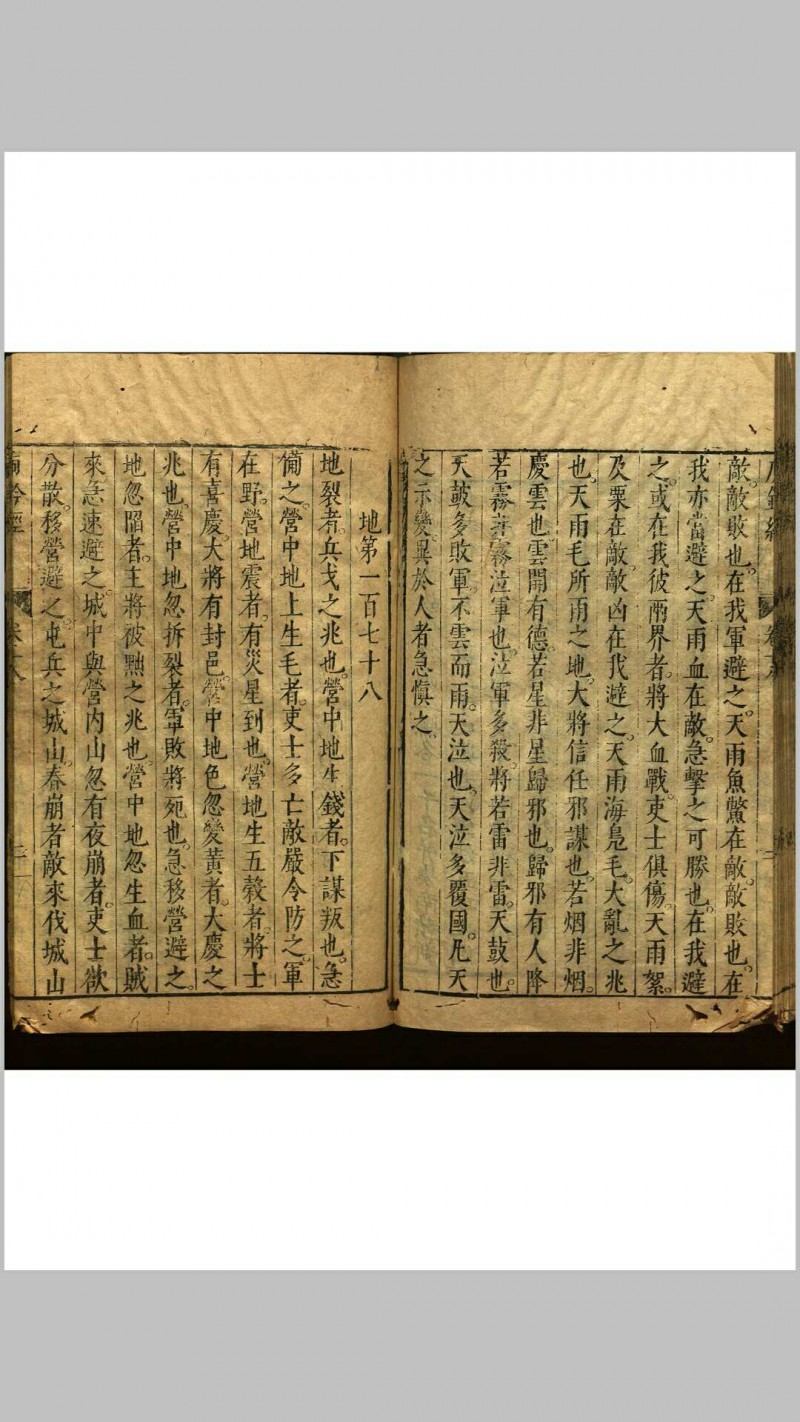 敵敵敗也在我軍避之天雨魚鱉在敵敵敗也在
我亦當避之天雨血在敵急擊之可勝也在我避
之或在我彼兩界者將大血戰吏士俱傷天雨絮
及粟在敵敵凶在我避之天雨海凫毛大亂之兆
也天雨毛所雨之地大將信任邪謀也若烟非烟
慶雲也雲開有德若星非星歸邪也歸邪有人降
若霧非霧泣軍也泣軍多殺將若雷非雷天鼓也
天鼓多敗軍不雲而雨天泣也天泣多覆國凡天
之示變異於人者急慎之
地第一百七十八
地裂者兵戈之兆也營中地生錢者下謀叛也急
備之營中地上生毛者吏士多亡敵嚴令防之軍
在野營地震者有災星到也營地生五穀者將士
有喜慶大將有封邑營中地色忽變黃者大慶之
兆也營中地忽拆裂者軍敗將死也急移營避之
地忽陷者主將被黜之兆也營中地忽生血者賊
來急速避之城中與營內山忽有夜崩者吏士欲
分散移營避之屯兵之城山春崩者敵來伐城山